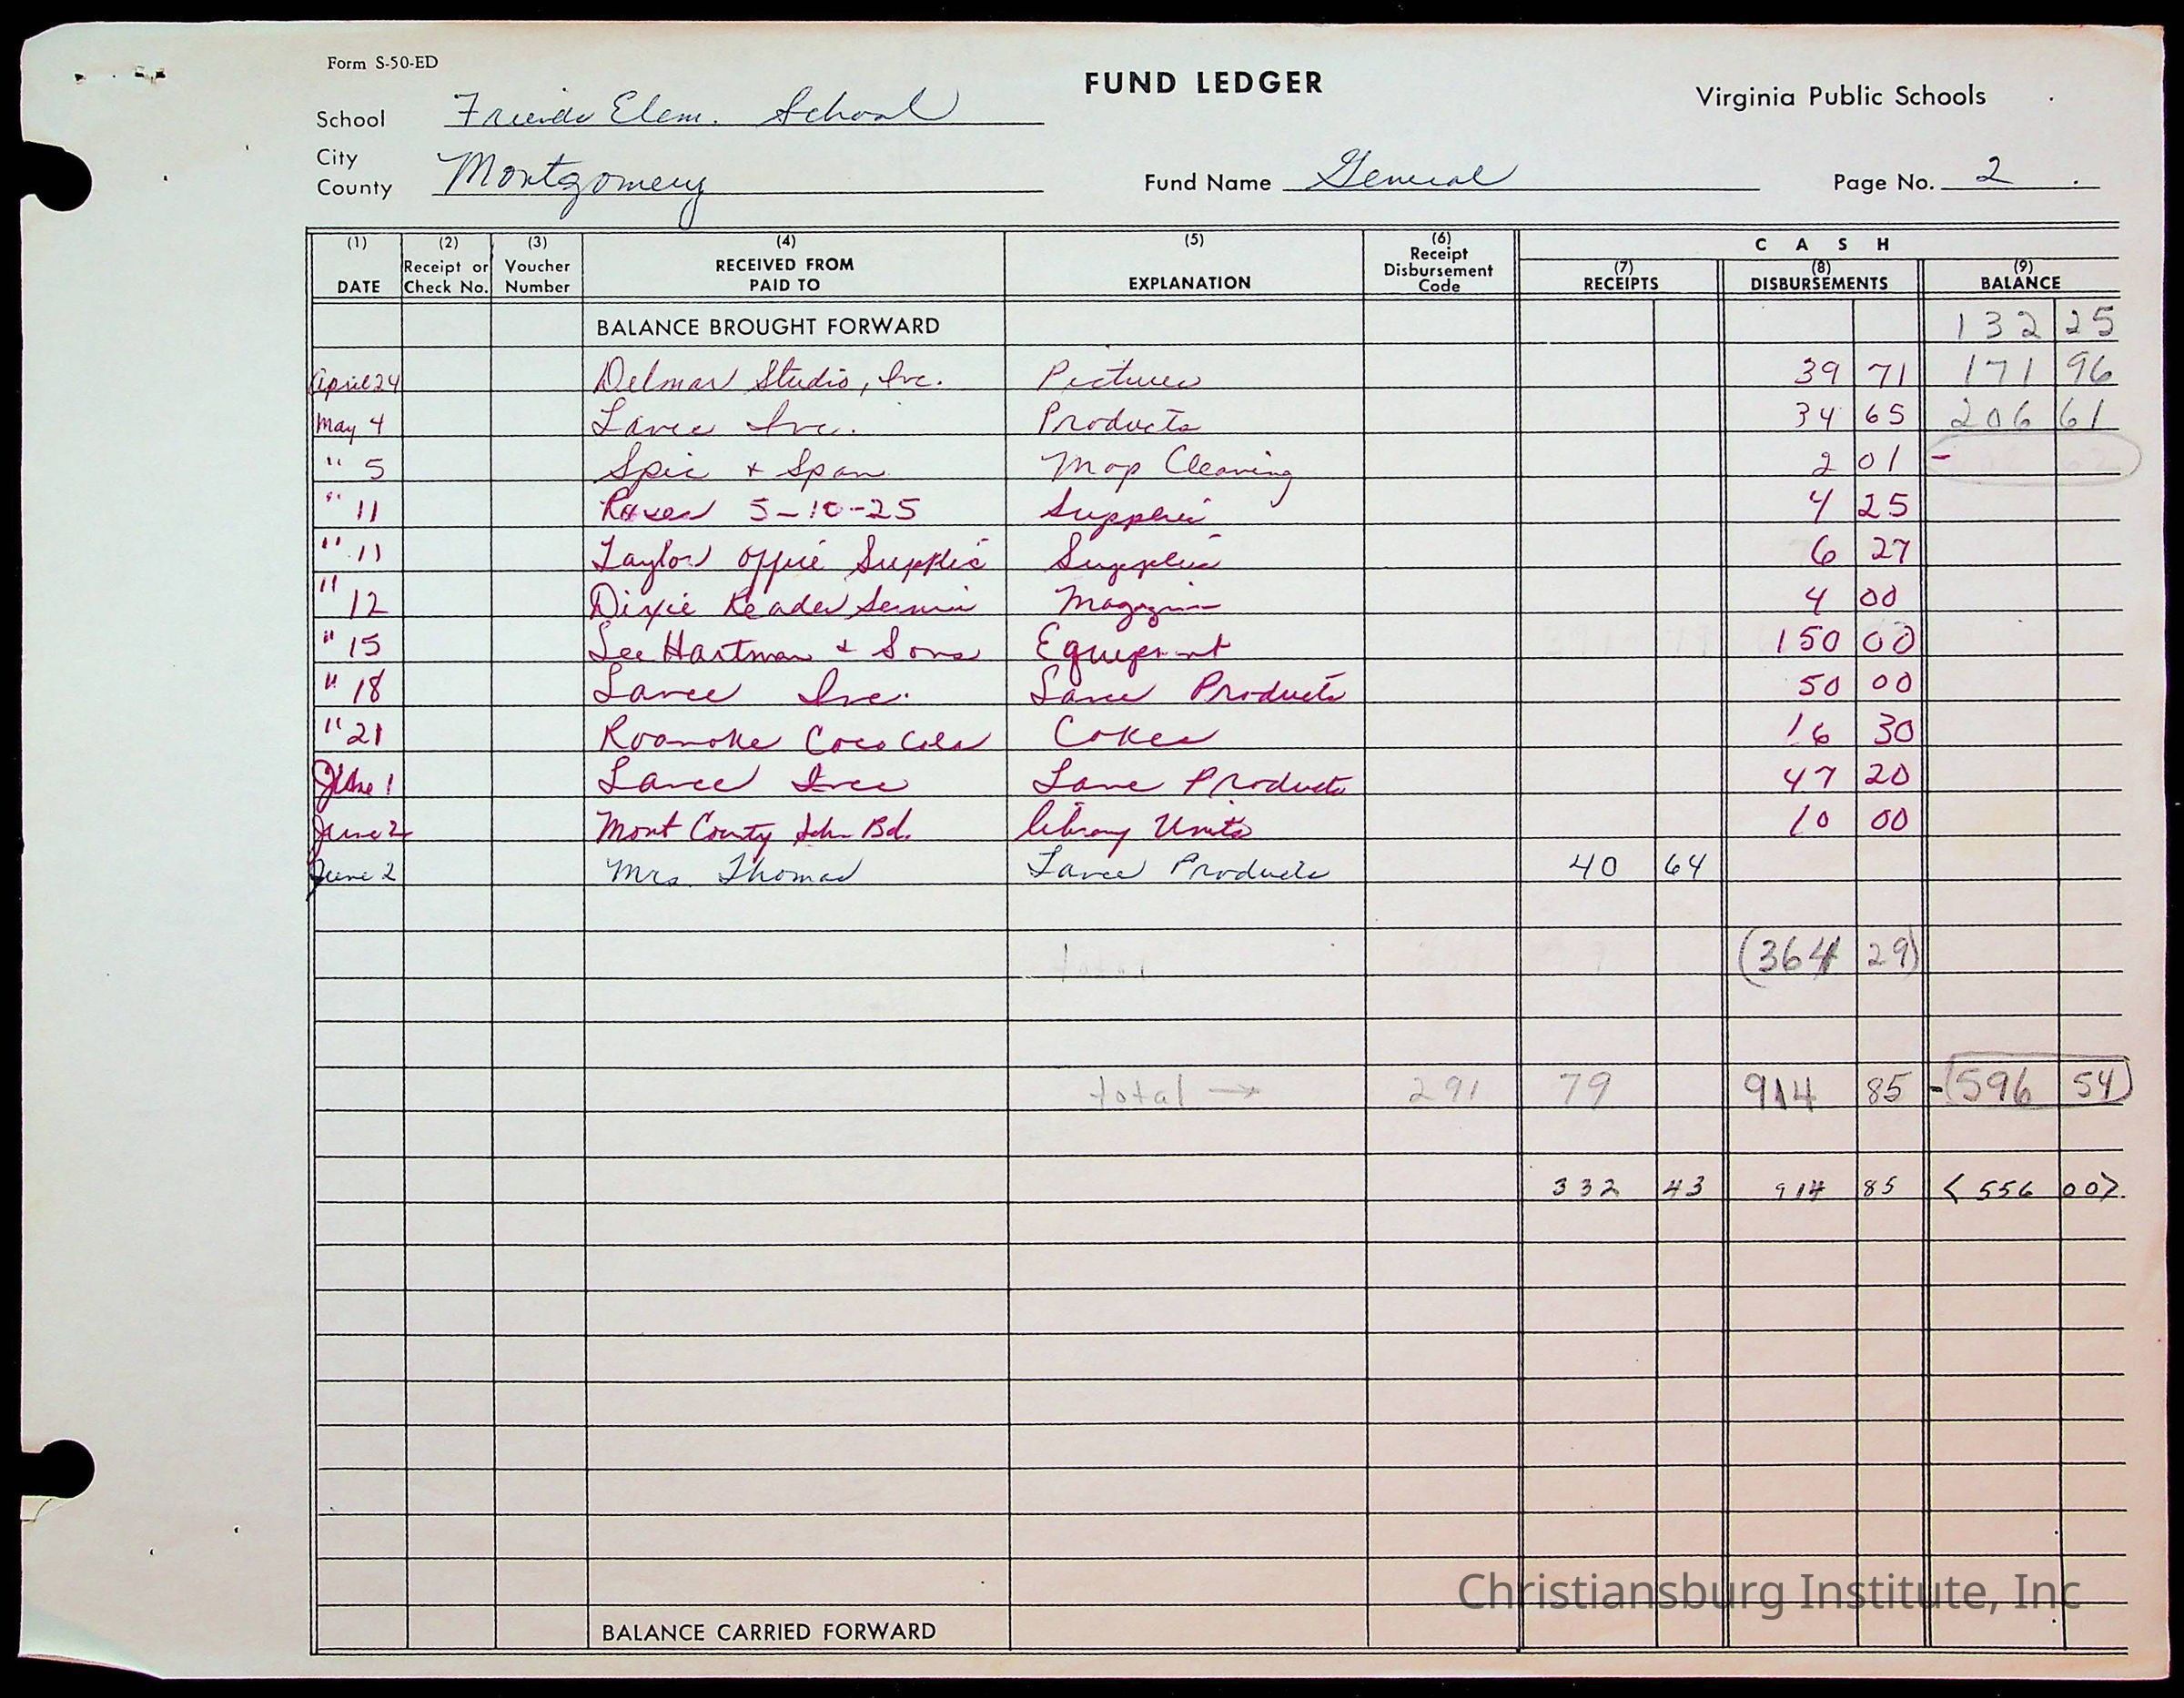 Form S-50-ED
FUND LEDGER
Virginia Public Schools
School Friends Elem. School
City
County Montgomery
Fund Name General
Page No. 2
(1) (2) (3) (4) (5) (6) C A S H
DATE Receipt or Check No. Voucher Number RECEIVED FROM PAID TO EXPLANATION Receipt Disbursement Code (7) RECEIPTS (8) DISBURSEMENTS (9) BALANCE
BALANCE BROUGHT FORWARD 132 25
April 24 Delmar Studio, Inc. Pictures 39 71 171 96
May 4 Lance Inc. Products 34 65 206 61
" 5 Spic + Span Mop Cleaning 2 01 -
" 11 Roses 5-10-25 Supplies 4 25
" 11 Taylor Office Supplies Supplies 6 27
" 12 Dixie Reader Service Magazine 4 00
" 15 Lee Hartman & Sons Equipment 150 00
" 18 Lance Inc. Lance Products 50 00
" 21 Roanoke Coca Cola Cokes 16 30
June 1 Lance Inc Lance Products 47 20
June 2 Mont County Sch. Bd. library Units 10 00
June 2 Mrs. Thomas Lance Products 40 64
total (364 29)
total → 291 79 914 85 -(596 54)
332 43 914 85 < 556 00>
BALANCE CARRIED FORWARD
Christiansburg Institute, Inc